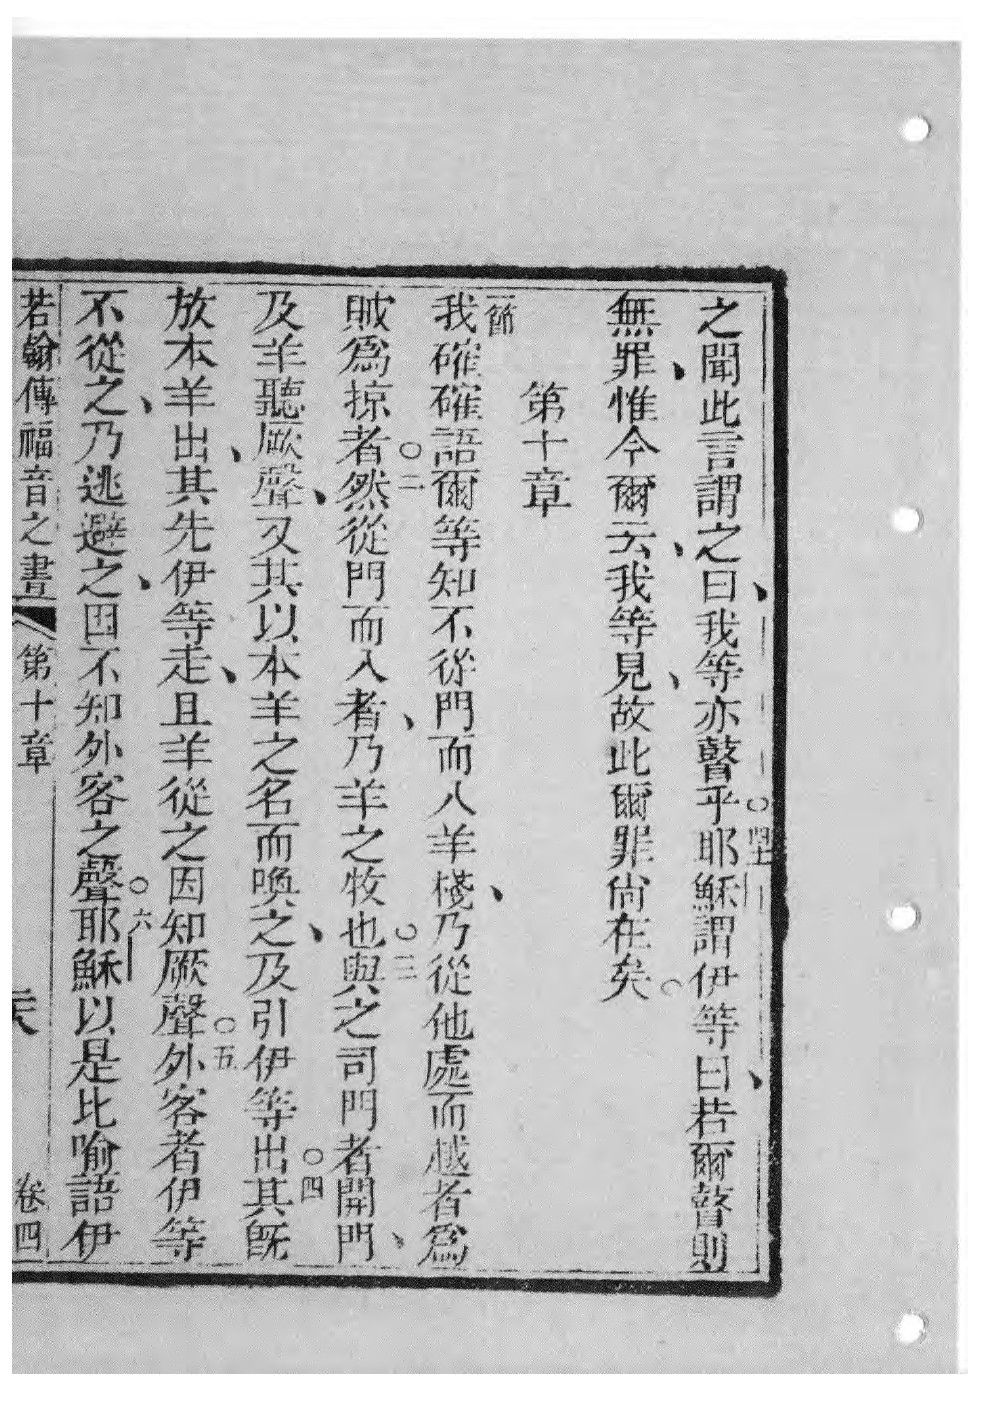 之聞此言謂之曰、我等亦瞽乎○四十一耶穌謂伊等曰、若爾瞽則
無罪、惟今爾云、我等見、故此爾罪尚在矣○
第十章
一節我確確語爾等知不從門而入羊棧、乃從他處而越者為
賊為掠者○二然從門而入者、乃羊之牧也○三與之司門者開門、
及羊聽厥聲、又其以本羊之名而喚之、及引伊等出○四其既
放本羊出、其先伊等走、且羊從之因知厥聲○五外客者伊等
不從之、乃逃避之、因不知外客之聲○六耶穌以是比喻語伊
若翰傳福音之書 第十章 卷四